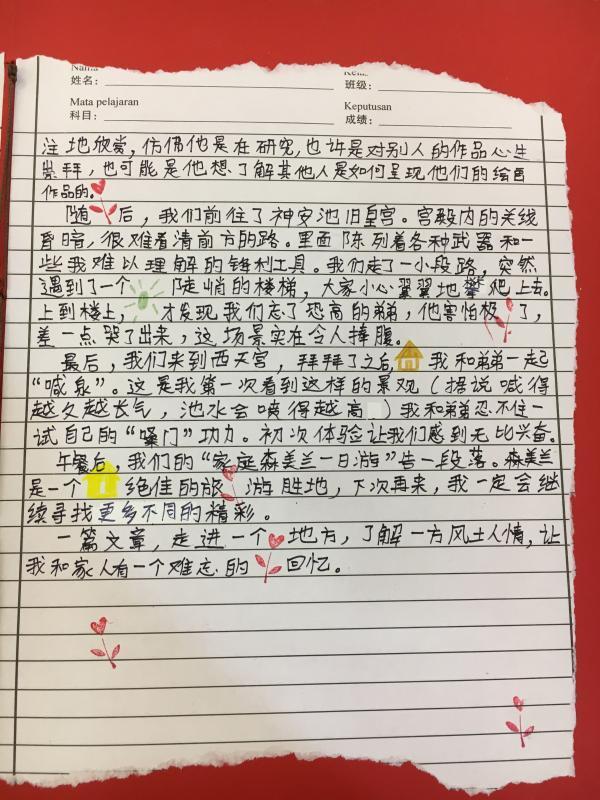 Mata pelajaran
Keputusan
姓名：
班级：
科目：
成绩：
注地欣赏，仿佛他是在研究，也许是对别人的作品心生
崇拜，也可能是他想了解其他人是如何呈现他们的绘画
作品的。
随后，我们前往了神安池旧皇宫。宫殿内的关线
昏暗，很难看清前方的路。里面陈列着各种武器和一
些我难以理解的锋利工具。我们走了一小段路，突然
遇到了一个陡峭的楼梯，大家小心翼翼地攀爬上去。
上到楼上，才发现我们忘了恐高的弟弟，他害怕极了，
差一点哭了出来，这场景实在令人捧腹。
最后，我们来到西天宫，拜拜了之后，我和弟弟一起
“喊泉”。这是我第一次看到这样的景观（据说喊得
越久越长气，池水会喷得越高）我和弟弟忍不住一
试自己的“嗓门”功力。初次体验让我们感到无比兴奋。
午餐后，我们的“家庭森美兰一日游”告一段落。森美兰
是一个绝佳的旅游胜地，下次再来，我一定会继
续寻找更多不同的精彩。
一篇文章，走进一个地方，了解一方风土人情，让
我和家人有一个难忘的回忆。